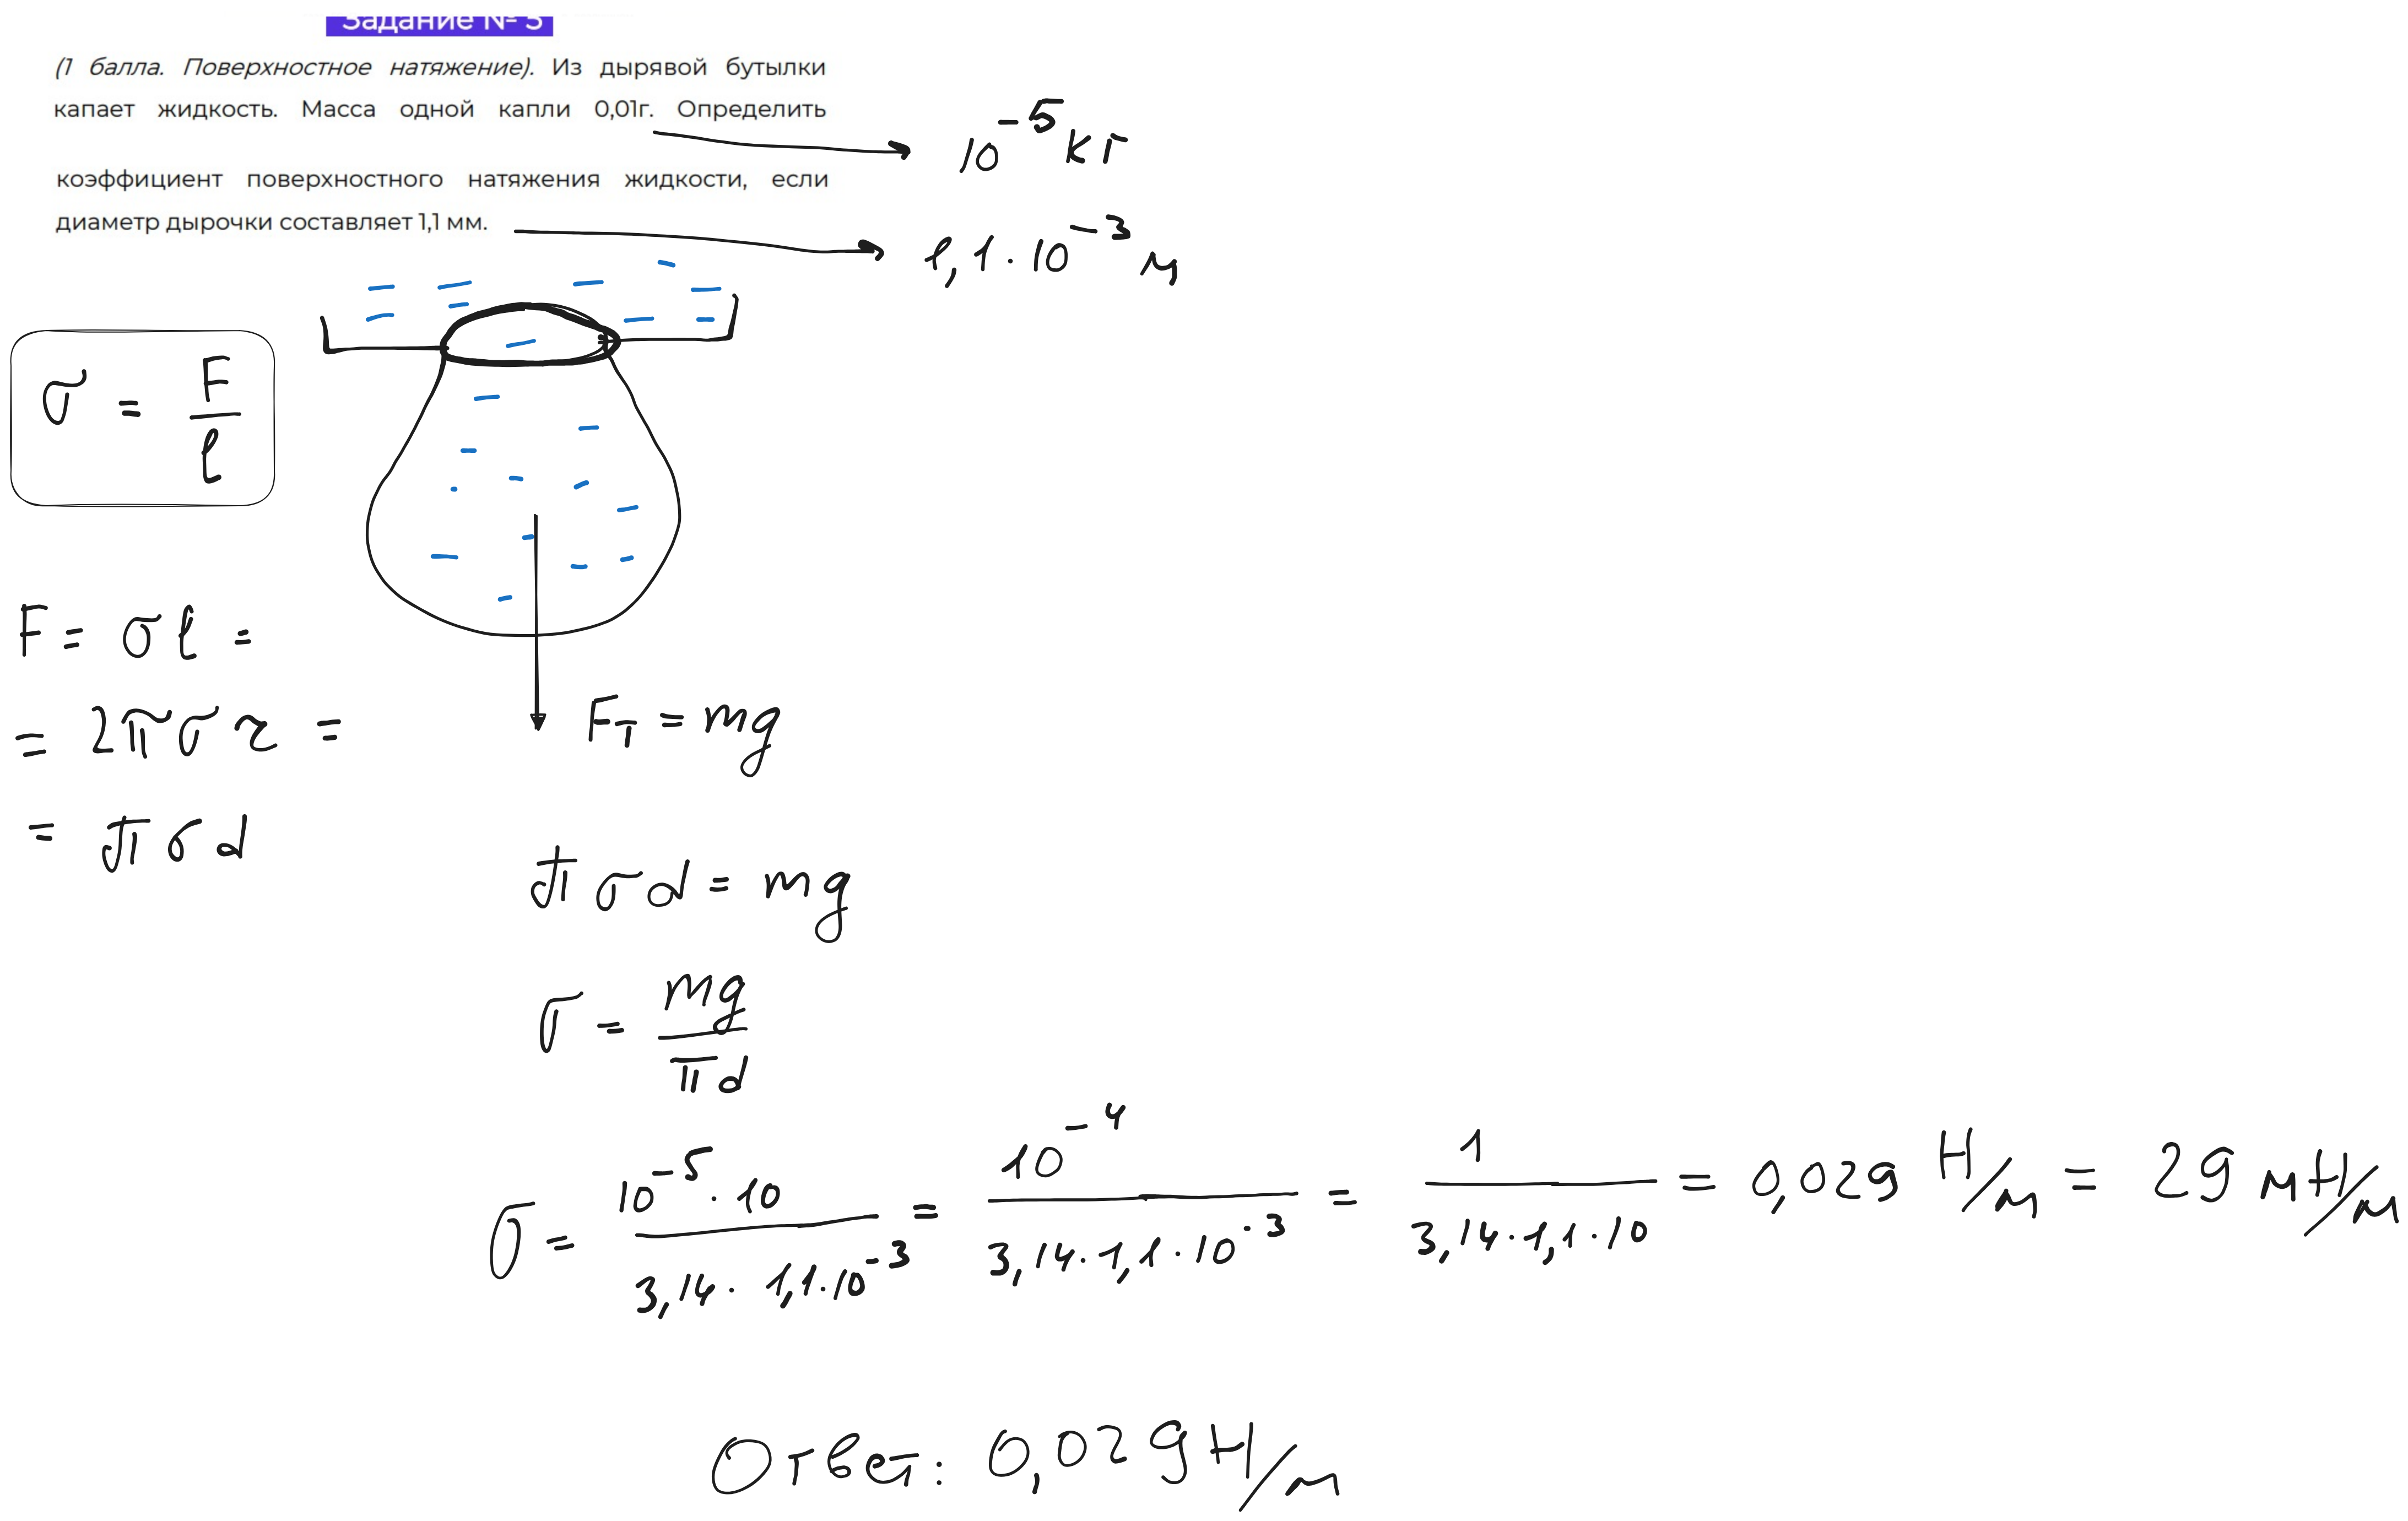 Задание № 5
(1 балла. Поверхностное натяжение). Из дырявой бутылки
капает жидкость. Масса одной капли 0,01г. Определить
коэффициент поверхностного натяжения жидкости, если
диаметр дырочки составляет 1,1 мм.
10^-5 кг
1,1 · 10^-3 м
σ = F/l
F = σl =
= 2πσr =
= πσd
Fт = mg
πσd = mg
σ = mg/πd
σ = 10^-5 · 10 / 3,14 · 1,1 · 10^-3 = 10^-4 / 3,14 · 1,1 · 10^-3 = 1 / 3,14 · 1,1 · 10 = 0,029 Н/м = 29 мН/м
Ответ: 0,029 Н/м